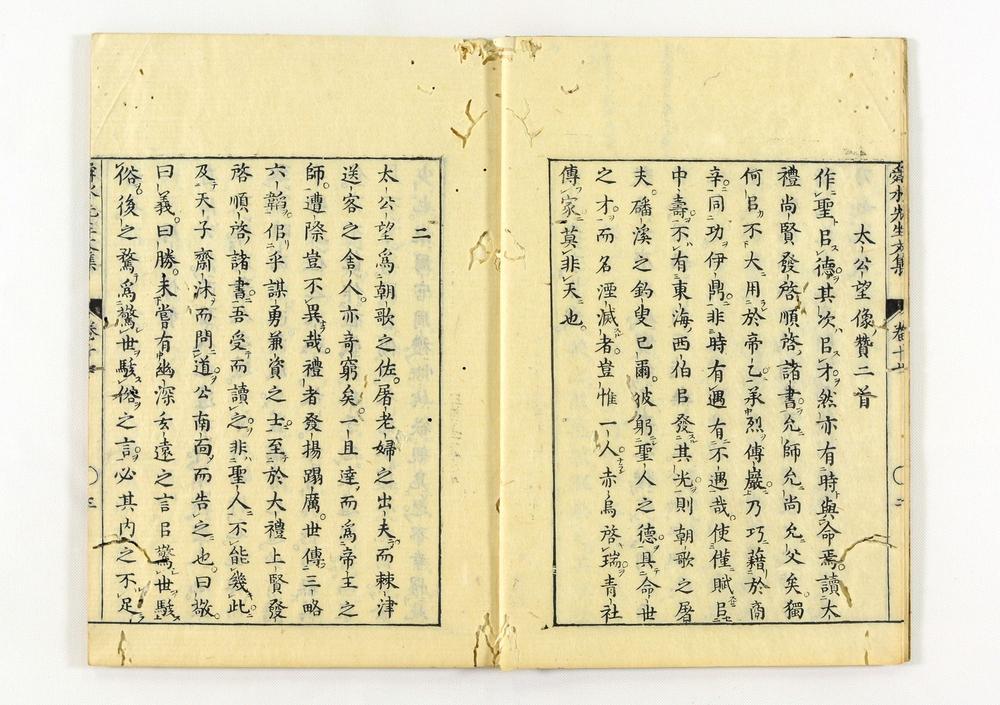 舜水先生文集 卷十 三
太公望像贊二首
作聖㠯德其次㠯才然亦有時與命焉讀大
禮尚賢發啓順啓諸書允師允尚允父矣獨
何㠯不大用於帝乙承烈傅巖乃巧藉於商
辛同功伊鼎非時有遇有不遇哉使僅賦㠯
中壽不有東海西伯㠯發其光則朝歌之屠
夫磻溪之釣叟已爾彼躬聖人之德具命世
之才而名湮滅者豈惟一人赤烏啓瑞青社
傳家莫非天也
二
太公望爲朝歌之佐屠老婦之出夫而棘津
送客之舍人亦奇窮矣一旦達而爲帝王之
師遭際豈不異哉禮者發揚蹈厲世傳三略
六韜佀乎謀勇兼資之士至於大禮上賢發
啓順啓諸書吾受而讀之非聖人不能幾此
及天子齋沐而問道公南面而告之也曰敬
曰義曰勝未嘗有幽深玄遠之言㠯驚世駭
俗後之騖爲驚世駭俗之言必其内之不足